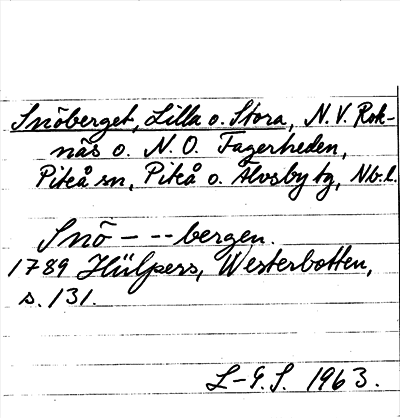 Snöberget, Lilla o. Stora, N.V. Rok-
näs o. N.O. Fagerheden,
Piteå sn, Piteå o. Älvsby tg, Nb.l.
Snö - -- bergen.
1789 Hülpers, Westerbotten,
s. 131.
L-G.S. 1963.